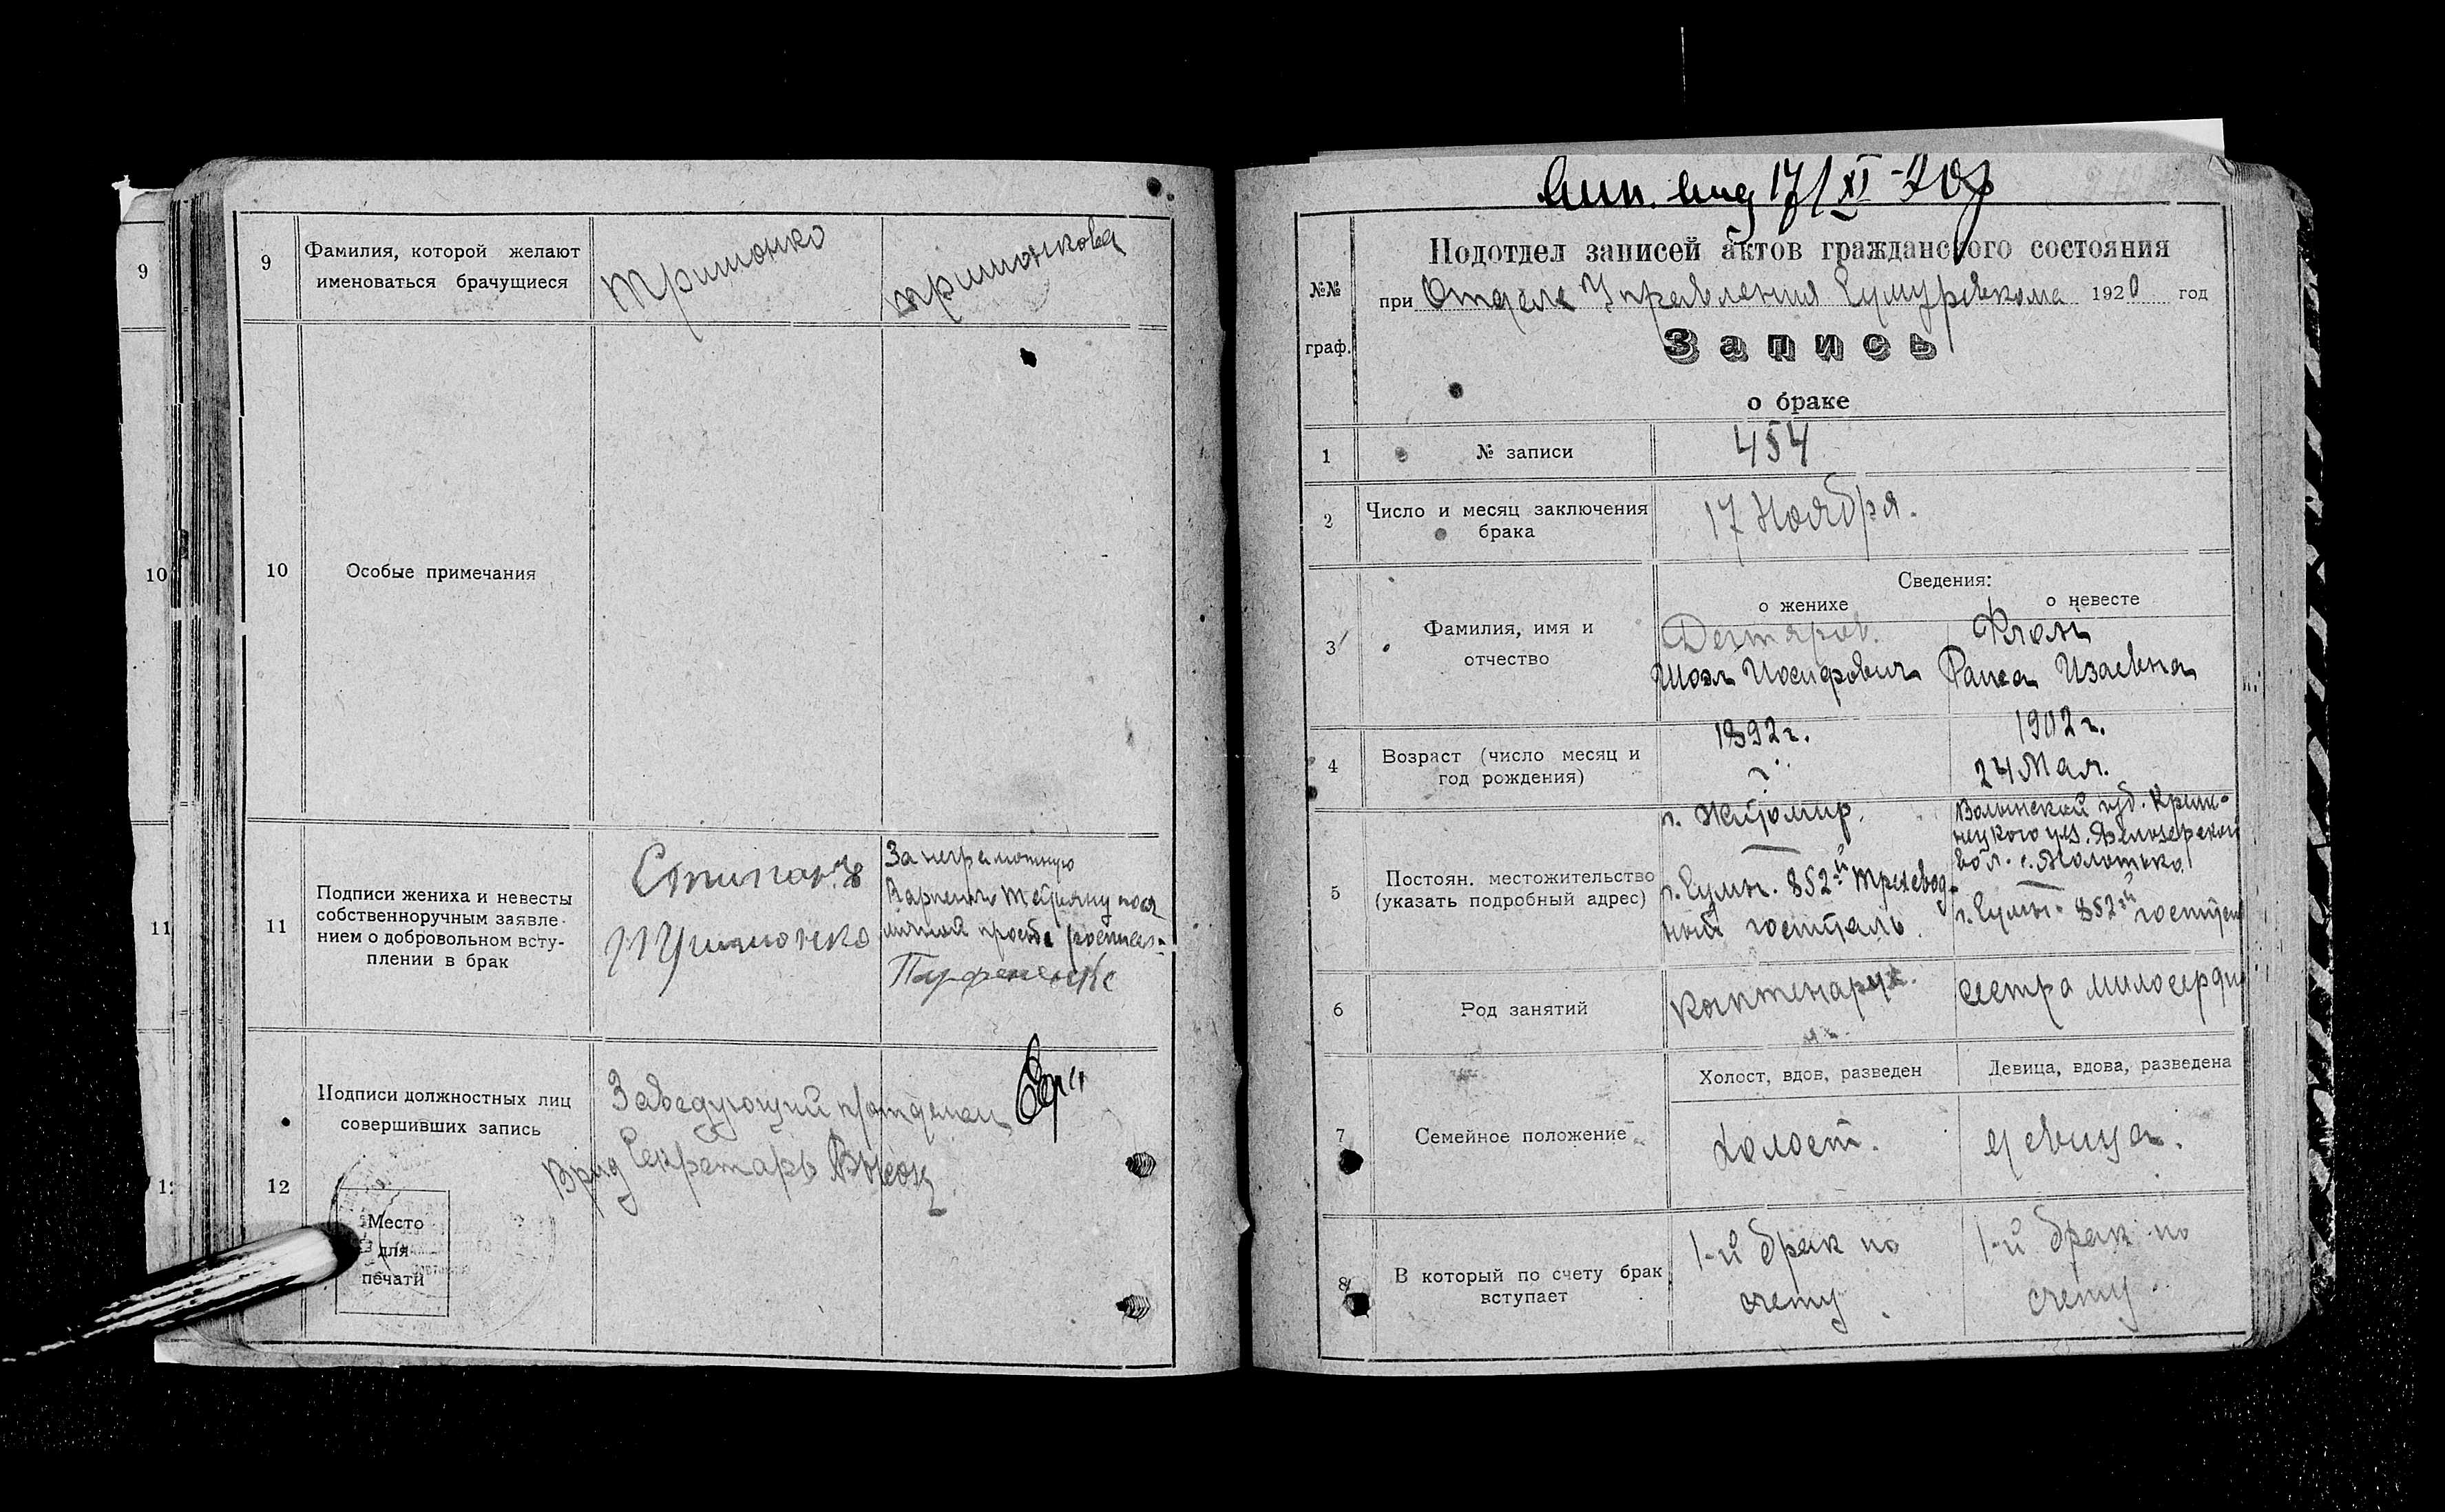 9
10
11
9
Фамилия, которой желают
именоваться брачущиеся
Тримонко
Тримонкова
10
Особые примечания
11
Подписи жениха и невесты
собственноручным заявле-
нием о добровольном всту-
плении в брак
За неграмотную
личной просьбе
Пархоменко
12
Подписи должностных лиц
совершивших запись
Заведующий п/отделом
Врид Секретарь
Место
для
печати
17/XI-20г
Подотдел записей актов гражданского состояния
№№
граф.
при Отделе Управления Сумуревкома 1920 год
Запись
о браке
1
№ записи
454
2
Число и месяц заключения
брака
17 Ноября.
Сведения:
о женихе
о невесте
3
Фамилия, имя и
отчество
Дегтярев.
Шоэл Иосифович
Раиса Изаевна
4
Возраст (число месяц и
год рождения)
1892 г.
?
1902 г.
24 Мая.
5
Постоян. местожительство
(указать подробный адрес)
г. Житомир.
г. Сумы. 852-й
ный госпиталь.
Волынской губ. Креме-
нецкого уез.
вол. с.
г. Сумы 852-й
6
Род занятий
Каптенармус.
сестра милосердия
7
Семейное положение
Холост, вдов, разведен
Девица, вдова, разведена
холост.
девица.
8
В который по счету брак
вступает
1-й брак по
счету
1-й брак по
счету